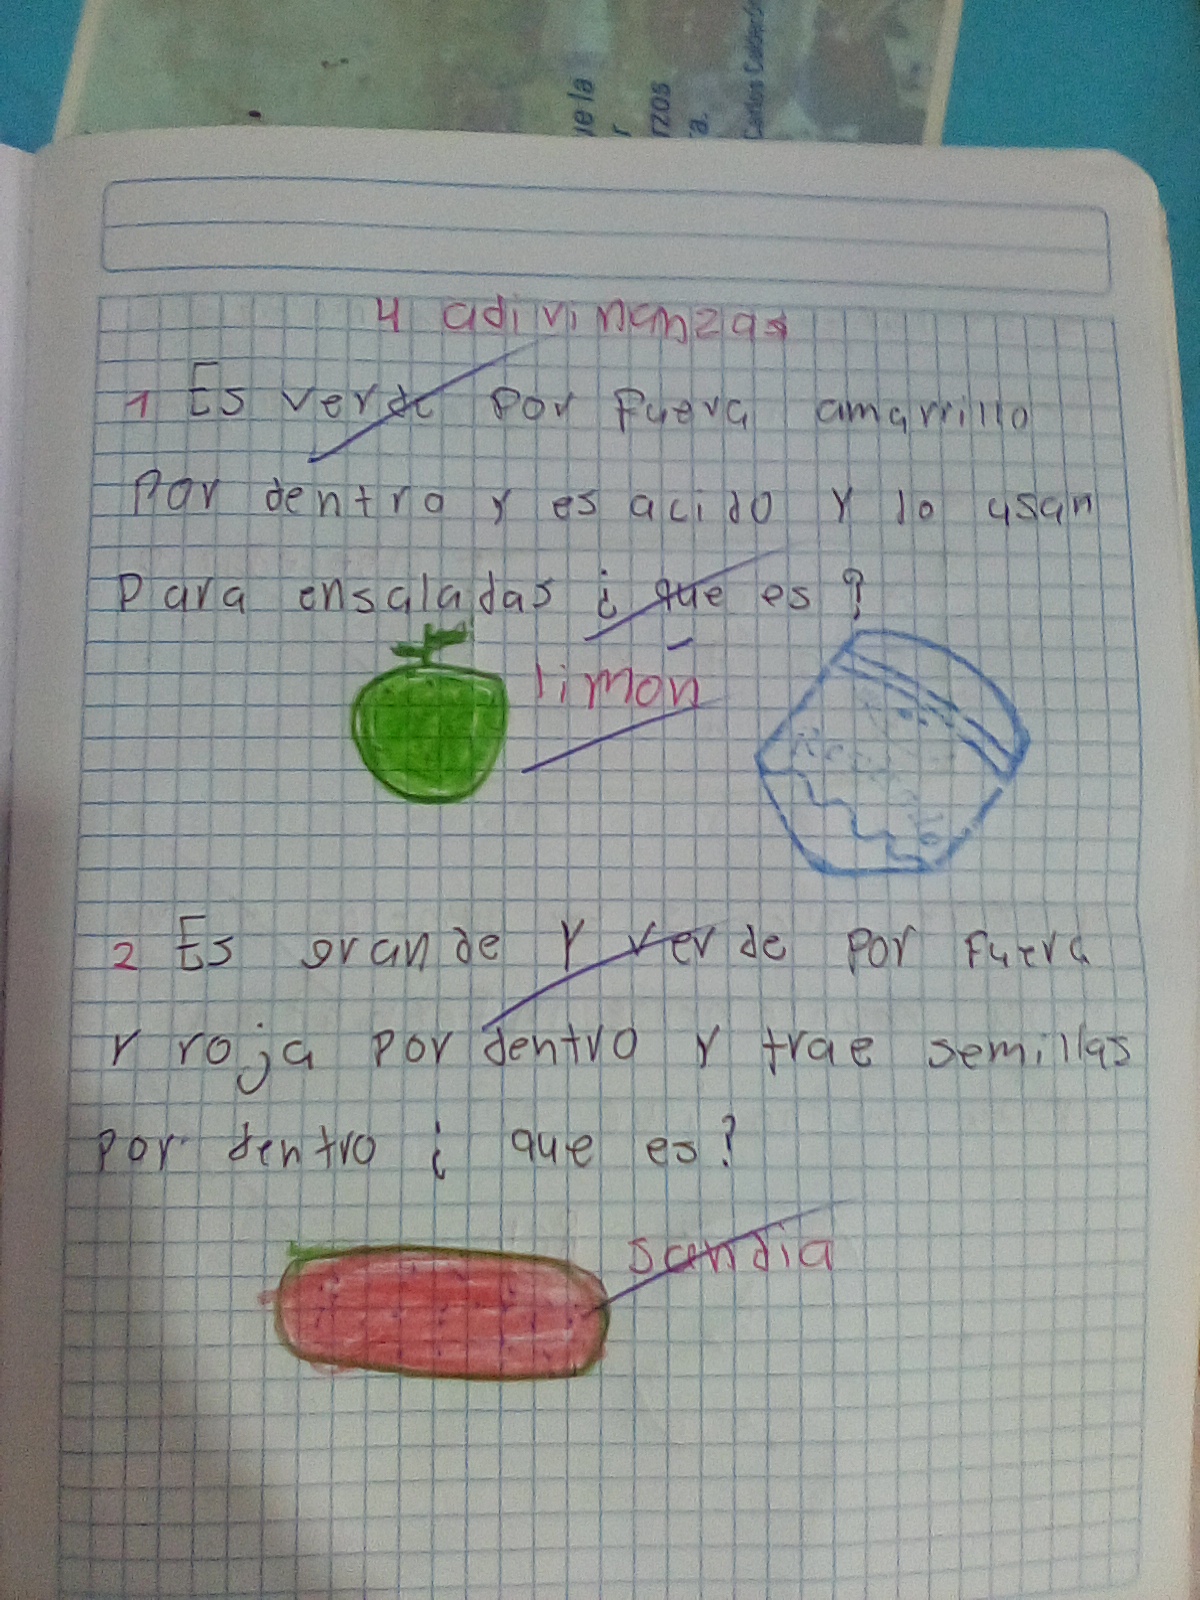 ue la
r
rzos
ra.
Carlos Calderó
4 adivinanzas
1 Es verde por fuera amarrillo
por dentro y es acido y lo usan
para ensaladas ¿ que es ?
limón
2 Es grande y verde por fuera
y roja por dentro y trae semillas
por dentro ¿ que es?
sandia